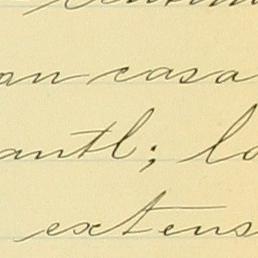 an casa
antl; lo
extens